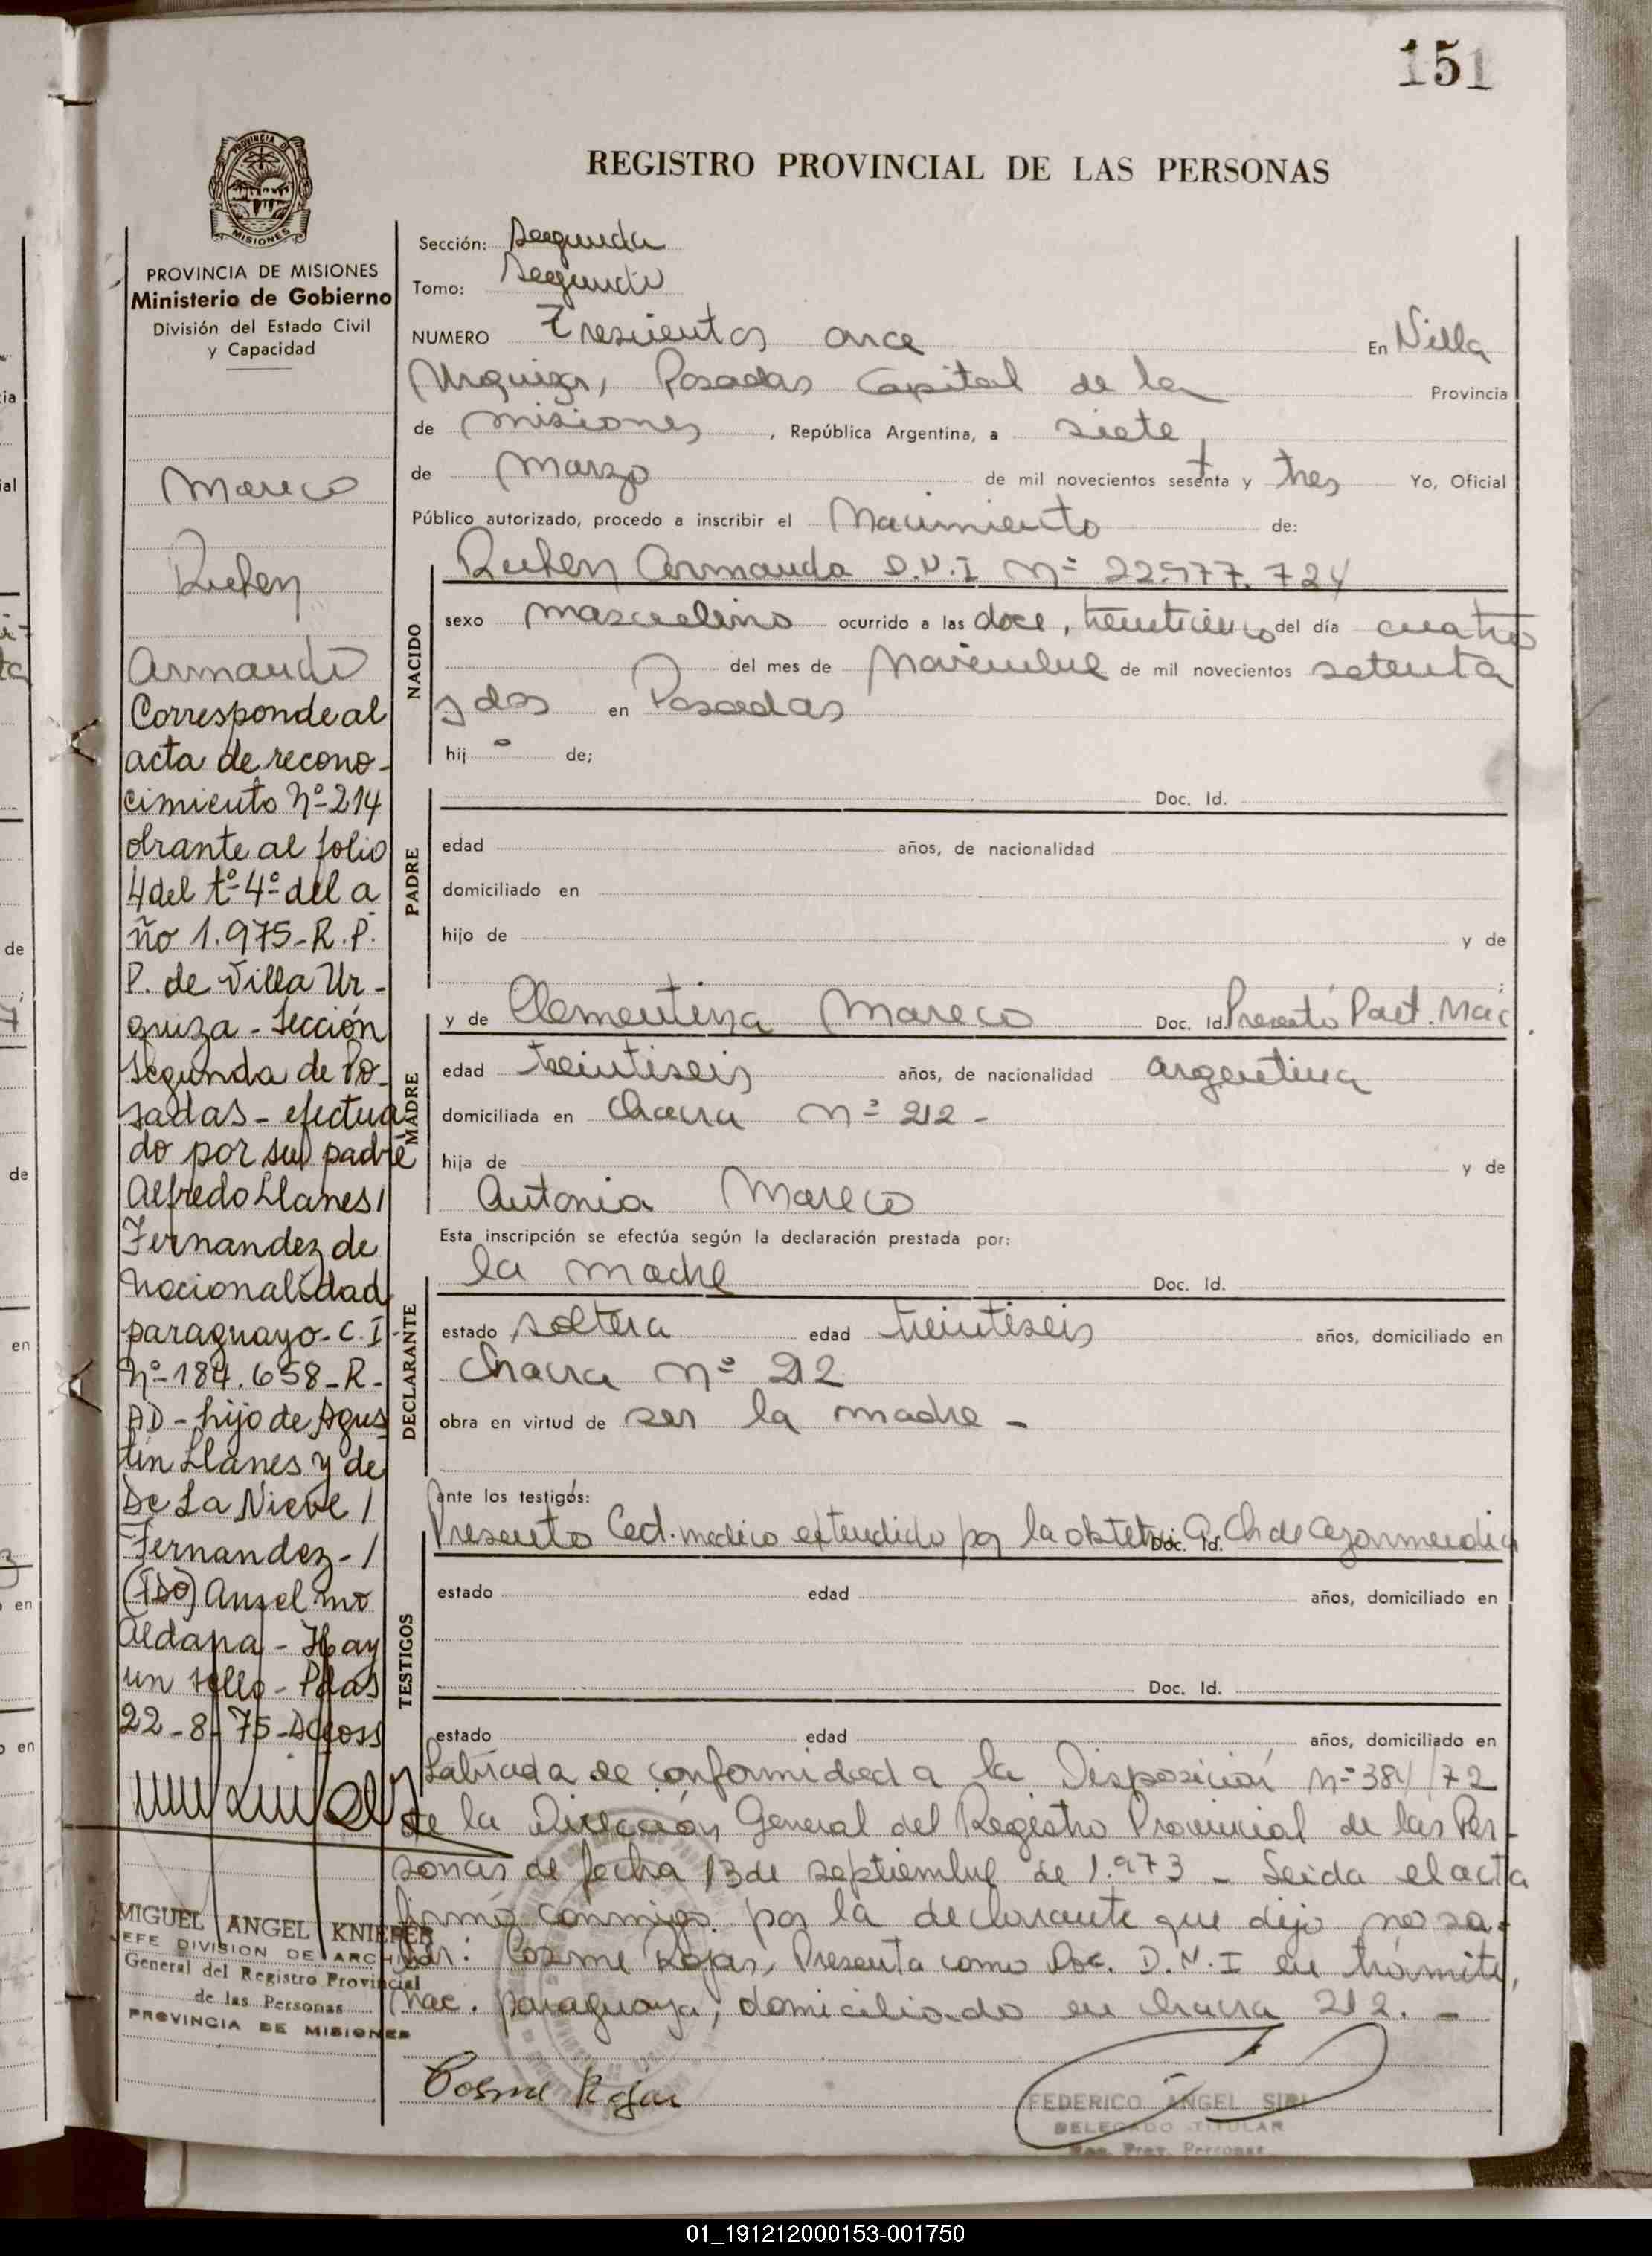 151
PROVINCIA DE
MISIONES
REGISTRO PROVINCIAL DE LAS PERSONAS
PROVINCIA DE MISIONES
Ministerio de Gobierno
División del Estado Civil
y Capacidad
Mareco
Ruben
Armando
Corresponde al
acta de recono-
cimiento Nº 214
obrante al folio
4 del tº 4º del a
ño 1.975-R.P.
P. de Villa Ur-
quiza - Sección
Segunda de Po-
sadas - efectua
do por su padre
Alfredo Llanes/
Fernandez de
Nacionalidad
paraguayo - C.I-
Nº 184.658-R-
AD - hijo de Agus
tín Llanes y de
De La Nieve/
Fernandez-/
(FDO) Anselmo
Aldana - Hay
un sello - Pdas
22-8-75-
MIGUEL ANGEL KNIEPER
JEFE DIVISION DE ARCHIVO
General del Registro Provincial
de las Personas
PROVINCIA DE MISIONES
Sección: Segunda
Tomo: Segundo
NUMERO Trescientos once En Villa
Urquiza, Posadas Capital de la Provincia
de Misiones, República Argentina, a siete
de Marzo de mil novecientos sesenta y tres Yo, Oficial
Público autorizado, procedo a inscribir el Nacimiento de:
NACIDO
Ruben Armando D.N.I Nº 22.977.724
sexo masculino ocurrido a las doce, treinticinco del día cuatro
del mes de Noviembre de mil novecientos setenta
y dos en Posadas
hijo de;
PADRE
Doc. Id.
edad años, de nacionalidad
domiciliado en
hijo de y de
;
MADRE
y de Clementina Mareco Doc. Id. Presentó Part. Nac.
edad treintiseis años, de nacionalidad argentina
domiciliada en Chacra Nº 212 -
hija de y de
Antonia Mareco
Esta inscripción se efectúa según la declaración prestada por:
DECLARANTE
la madre Doc. Id.
estado soltera edad treintiseis años, domiciliado en
Chacra Nº 212
obra en virtud de ser la madre -
ante los testigos:
TESTIGOS
Presento Cert. medico extendido por la obstet. Doc. Id. Ch de Azarmendia
estado edad años, domiciliado en
Doc. Id.
estado edad años, domiciliado en
Labrada de conformidad a la Disposición Nº 384/72
de la Dirección General del Registro Provincial de las Per-
sonas de fecha 13 de septiembre de 1.973 - Leida el acta
firmó conmigo por la declarante que dijo no sa-
ber: Cosme Rojas, Presenta como Doc. D.N.I en trámite,
nac. paraguaya, domiciliado en chacra 212. -
Cosme Rojas
FEDERICO ANGEL SIRI
DELEGADO TITULAR
Reg. Prov. Personas
01_191212000153-001750